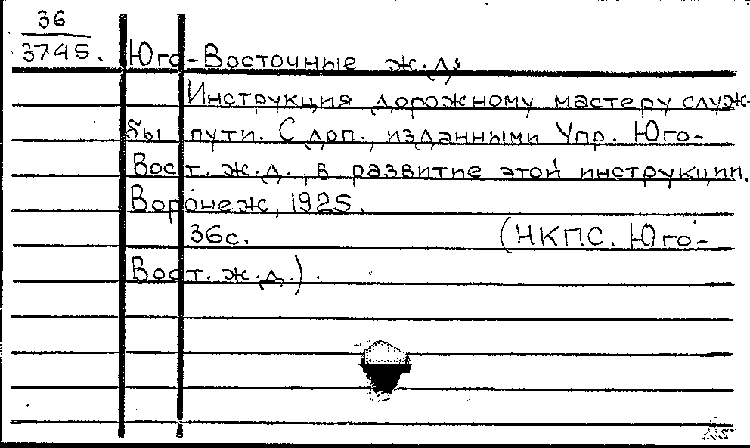 36
3745. Юго-Восточные ж.д.
Инструкция дорожному мастеру служ-
бы пути. С доп., изданными Упр. Юго-
Вост. ж.д., в развитие этой инструкции.
Воронеж, 1925.
36с. (НКПС. Юго-
Вост. ж.д.).